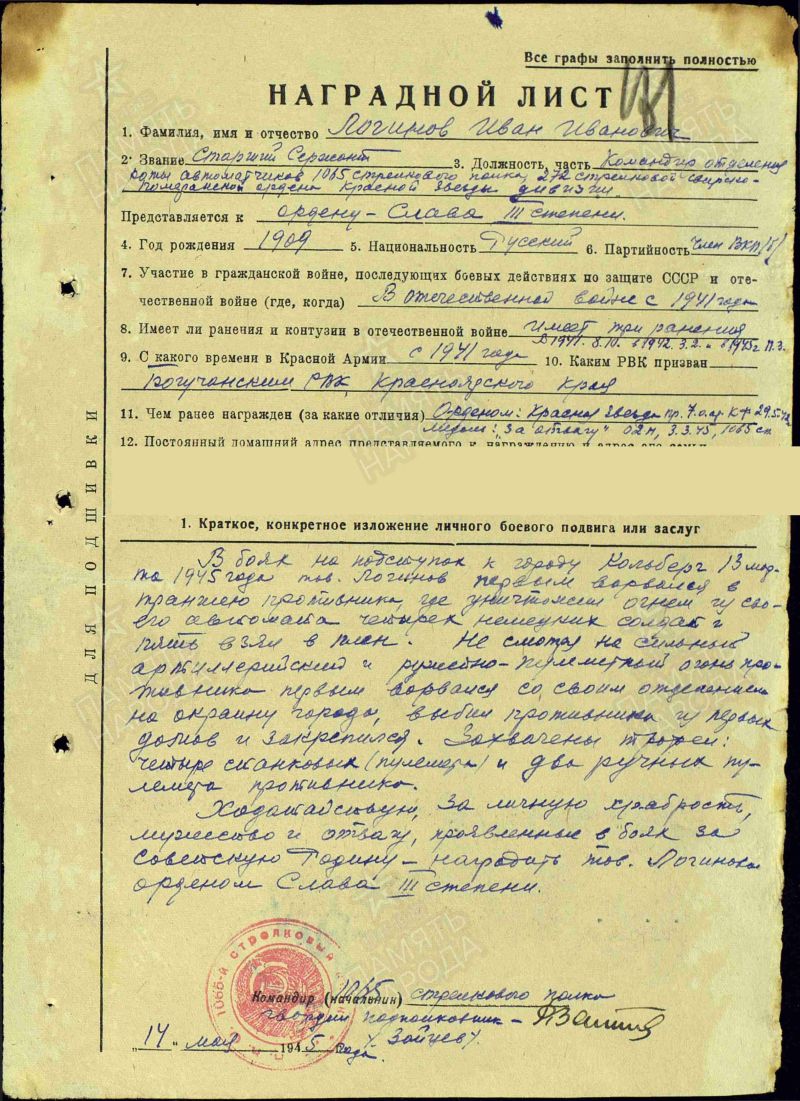 Все графы заполнить полностью
НАГРАДНОЙ ЛИСТ
1. Фамилия, имя и отчество Логинов Иван Иванович
2. Звание Старший Сержант 3. Должность, часть Командир отделения
роты автоматчиков 1065 стрелкового полка, 272 стрелковой Свирско-
Померанской ордена Красной Звезды дивизии.
Представляется к ордену – Слава III степени.
4. Год рождения 1909 5. Национальность Русский 6. Партийность Член ВКП/б/
7. Участие в гражданской войне, последующих боевых действиях по защите СССР и оте-
чественной войне (где, когда) В отечественной войне с 1941 года
8. Имеет ли ранения и контузии в отечественной войне Имеет три ранения
в 1941. 8.10. в 1942. 3.2. и в 1945г 11.3.
9. С какого времени в Красной Армии с 1941 года 10. Каким РВК призван
Богучанским РВК, Красноярского Края
11. Чем ранее награжден (за какие отличия) Орденом: Красная Звезда пр. 7.о.ар. К.Ф 29.5.42
медаль: „За отвагу" 3.3.45, 1065 сп
12. Постоянный домашний адрес представляемого к награждению и адрес его семьи
1. Краткое, конкретное изложение личного боевого подвига или заслуг
В боях на подступах к городу Кольберг 13 мар-
та 1945 года тов. Логинов первым ворвался в
траншею противника, где уничтожил огнем из сво-
его автомата четырех немецких солдат и
пять взял в плен. Не смотря на сильный
артиллерийский и ружейно-пулеметный огонь про-
тивника первым ворвался со своим отделением
на окраину города, выбил противника из первых
домов и закрепился. Захвачены трофеи:
четыре станковых (пулемета) и два ручных пу-
лемета противника.
Ходатайствую, за личную храбрость,
мужество и отвагу, проявленные в боях за
Советскую Родину – наградить тов. Логинова
орденом Слава III степени.
1065-й стрелковый
Командир (начальник) 1065 стрелкового полка
гвардии подполковник –
/ Зайцев /.
„14" мая 1945 года.
ДЛЯ ПОДШИВКИ
ПАМЯТЬ НАРОДА